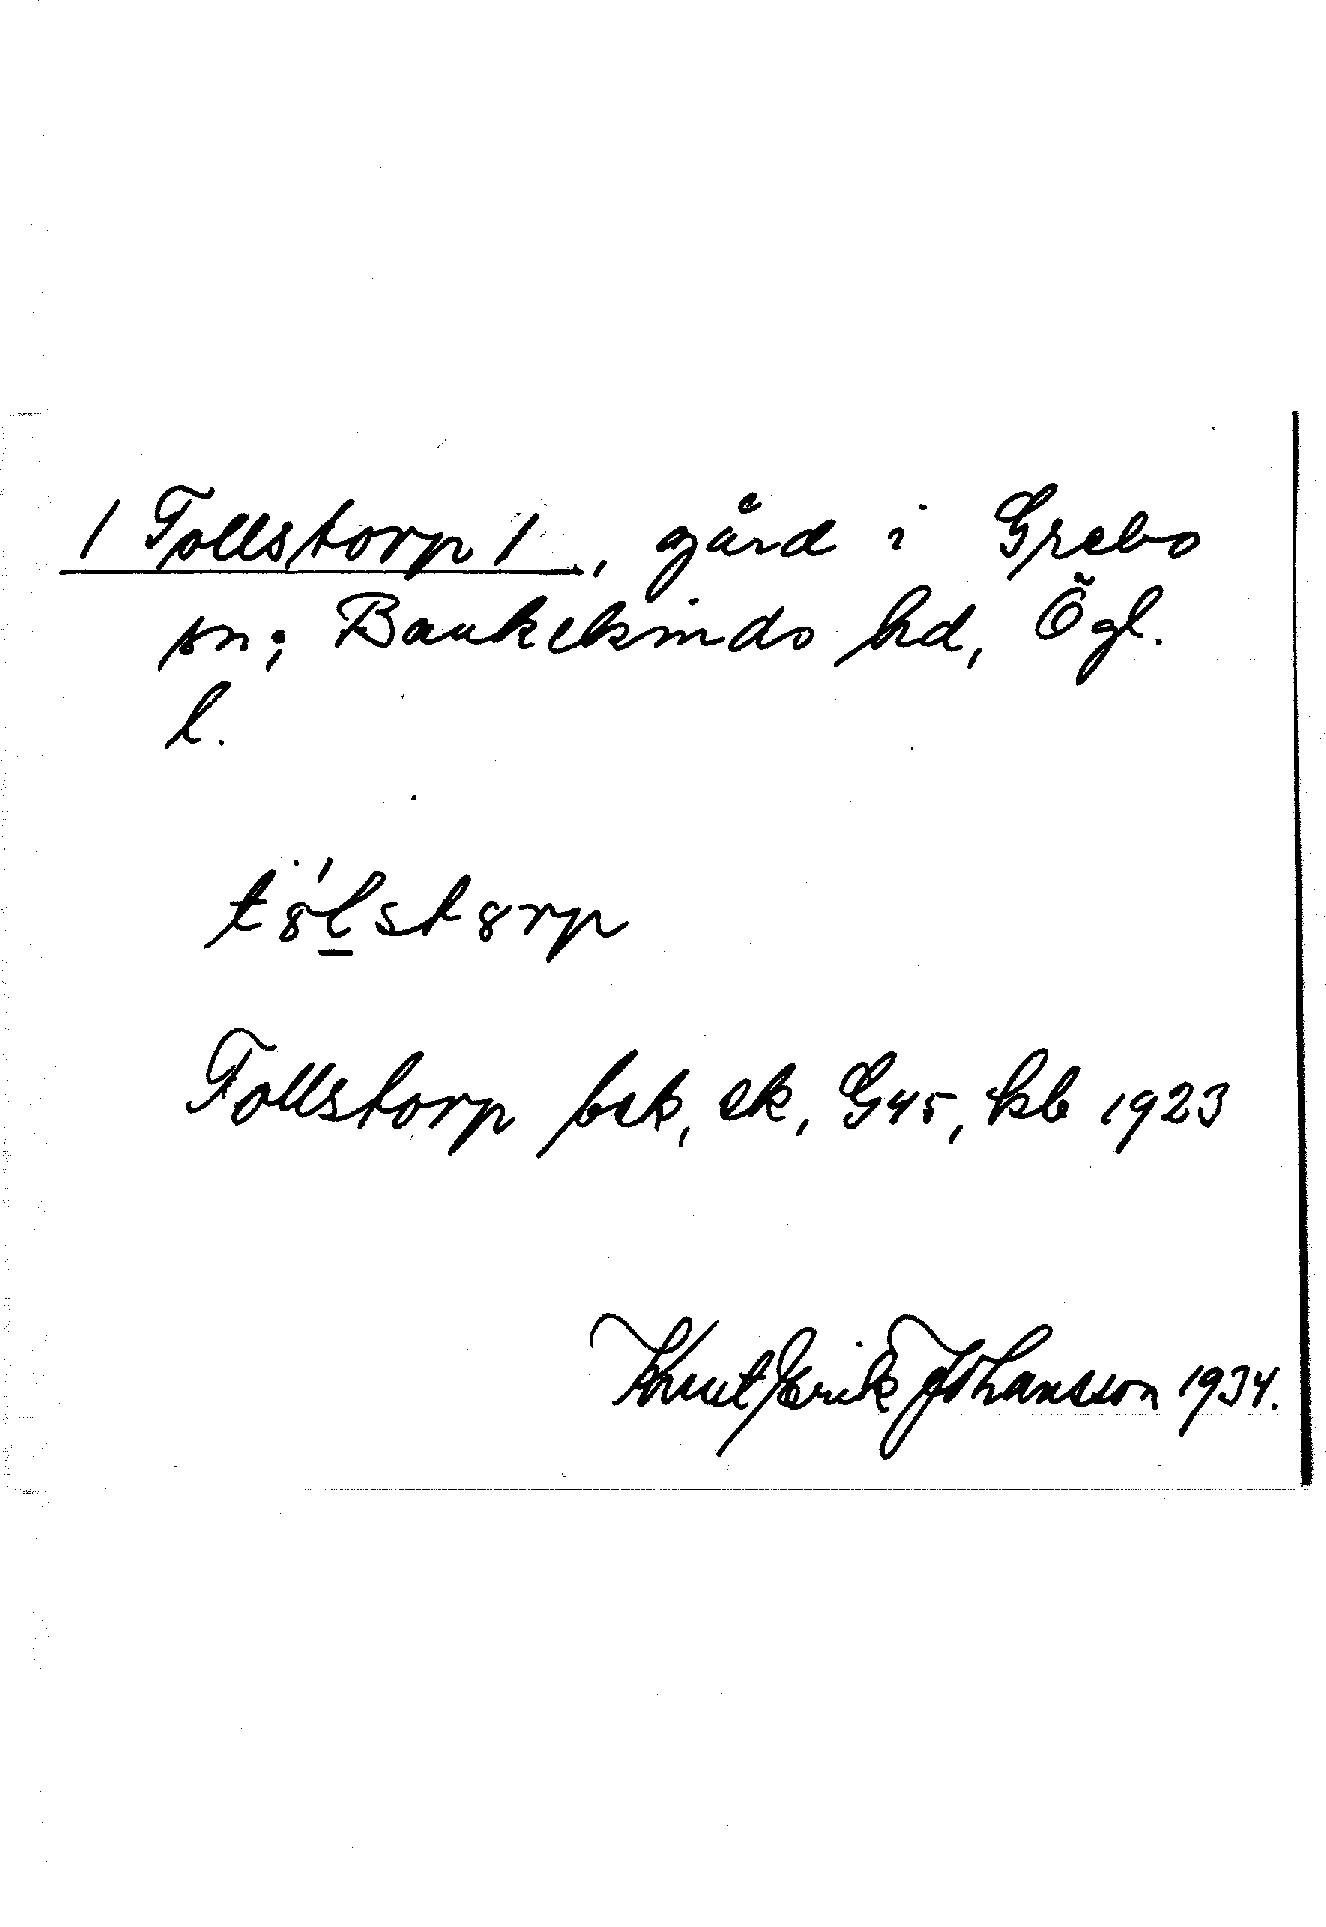 / Tollstorp /, gård i Grebo
sn; Bankekinds hd, Ögl.
l.
t8́lst8rp
Tollstorp bek, ek, G45, kb 1923
Knut Erik Johansson 1934.